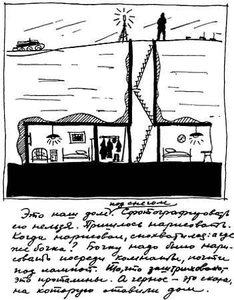 под снегом
Это наш дом! Сфотографировать
его нельзя. Пришлось нарисовать.
Когда нарисовал, спохватился: а где
же бочка? Бочку надо было нари-
совать посреди комнаты, почти
под лампой. То, что заштриховано,
это проталины. А черное – это скала,
на которую ставили дом.